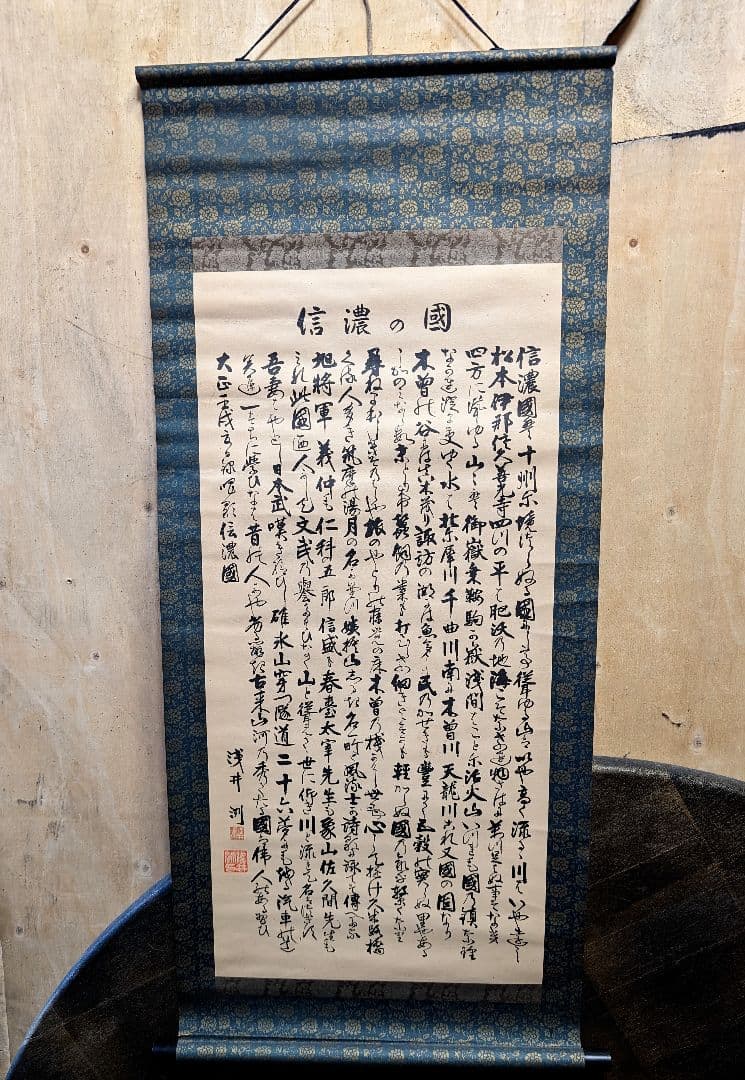 信濃の國
信濃國は十州に境つらぬる國にして聳ゆる山はいや高く流るゝ川はいや遠し
松本伊那佐久善光寺四つの平は肥沃の地海こそなけれ物さはに萬たらはぬ事そなき
四方に聳ゆる山々は御嶽乗鞍駒か嶽浅間はことに活火山いつれも國の鎮なり
流れ淀ますゆく水は北に犀川千曲川南に木曽川天龍川これ又國の固なり
木曽の谷には真木茂り諏訪の湖には魚多し民のかせきも豊にて五穀の實らぬ里やある
しかのみならす桑とりて蠶飼の業の打ひらけ細きよすかも軽からぬ國の命を繋くなり
尋ねまほしき園原や旅のやとりの寐覚の床木曽の棧かけし世も心してゆけ久米路橋
くる人多き筑摩の湯月の名にたつ姨捨山しるき名所と風雅士か詩歌に詠てそ傳へたる
旭将軍義仲も仁科の五郎信盛も春臺太宰先生も象山佐久間先生も
皆此國の人にして文武の誉たくひなく山と聳えて世に仰き川と流れて名は尽す
吾妻はやとし日本武嘆き給ひし碓氷山穿つ隧道二十六夢にもこゆる汽車の道
みち一すちに學ひなは昔の人にや劣るへき古来山河の秀てたる國は偉人のある習ひ
大正壬戌 信濃國
浅井洌